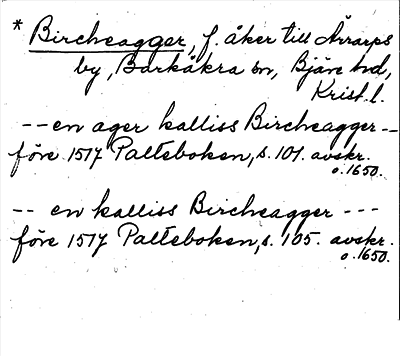 * Bircheagger, f. åker till Ärrarps
by, Barkåkra sn, Bjäre hd,
Krist. l.
-- en ager kalliss Bircheagger --
före 1517 Palteboken, s. 101. avskr.
o. 1650.
-- en kalliss Bircheagger ---
före 1517 Palteboken, s. 105. avskr.
o. 1650.